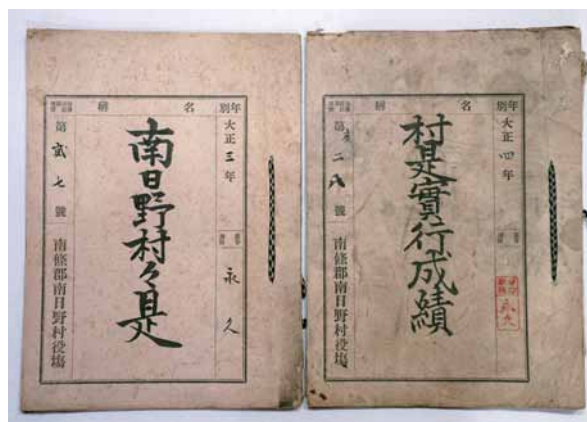 年別 名稱
大正三年
永久
南日野村々是
第貳七號
南條郡南日野村役塲
年別 名稱
大正四年
永久
村是實行成績
第二八號
南條郡南日野村役塲